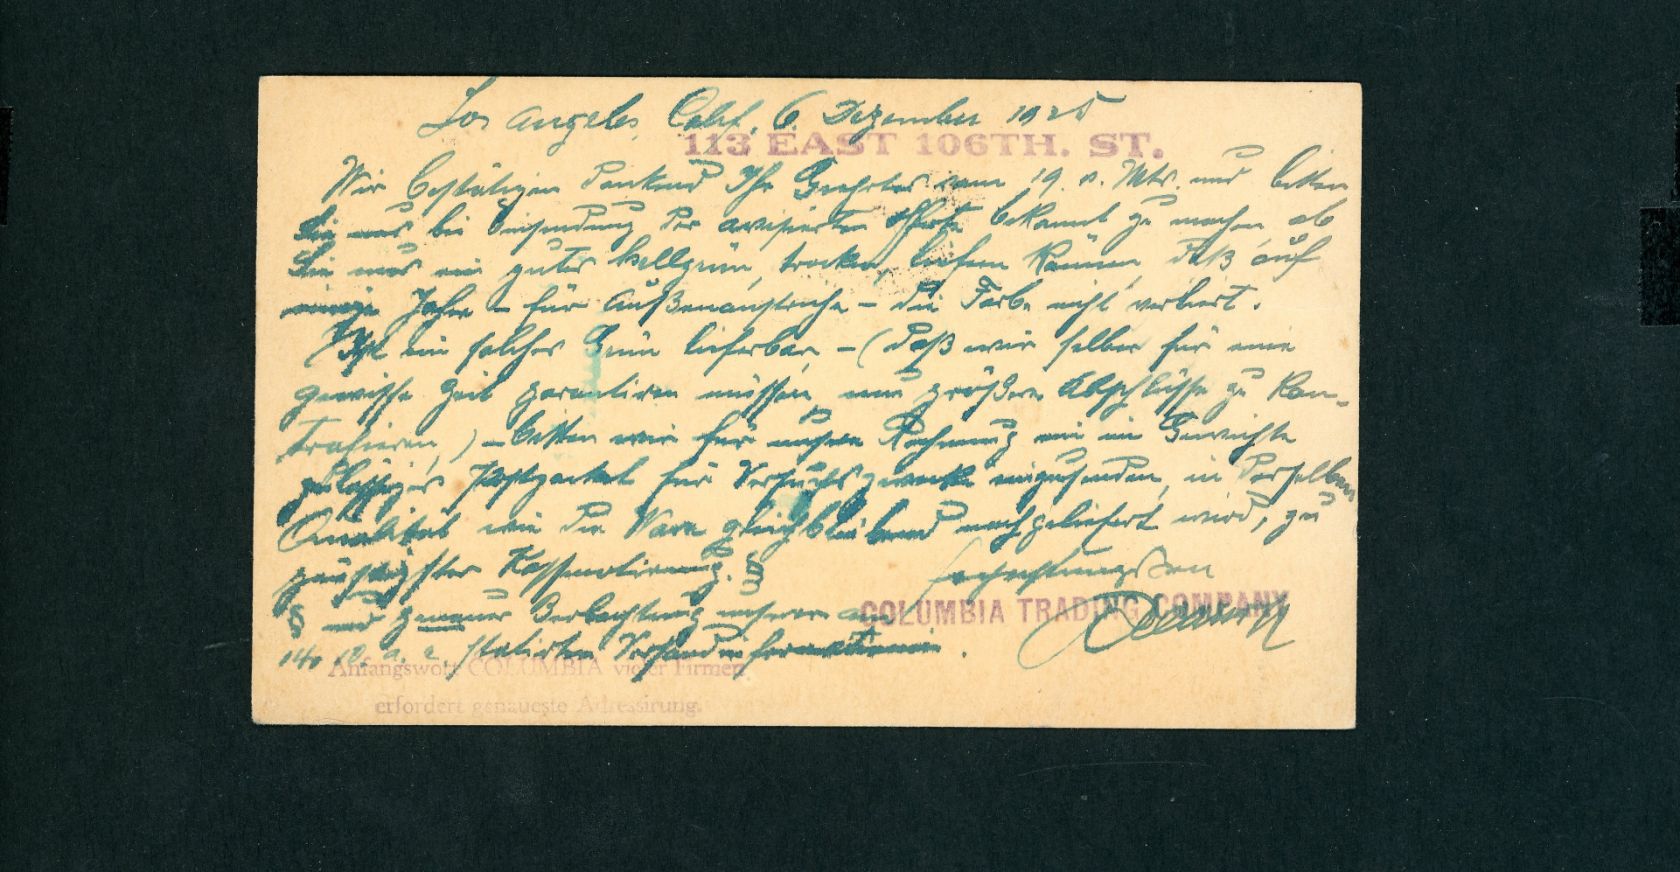 Los Angeles, Calif. 6. Dezember 1925
113 EAST 106TH. ST.
Wir bestätigen dankend Ihr Geehrtes vom 19. v. Mts. und bitten
Sie uns bei Einsendung der avisierten Offerte bekannt zu machen, ob
Sie uns ein gutes Hellgrün, trocken, liefern können, daß auf
einige Jahre – für Außenanstriche – die Farbe nicht verliert.
Ist ein solches Grün lieferbar, – (daß wir selber für eine
gewisse Zeit garantieren müssen, um größere Abschlüsse zu kon-
trahieren,) – bitten wir für unsere Rechnung ein im Gewichte
zulässiges Postpacket für Versuchszwecke einzusenden, in derselben
Qualität wie die Ware gleichbleibend nachgeliefert wird, zu
günstigster Kassenotierung. §
hochachtungsvoll
COLUMBIA TRADING COMPANY
§ und genauer Beobachtung unserer am
14. 10. a. c. Versandinformationen.
Anfangswort COLUMBIA vieler Firmen
erfordert genaueste Adressirung.